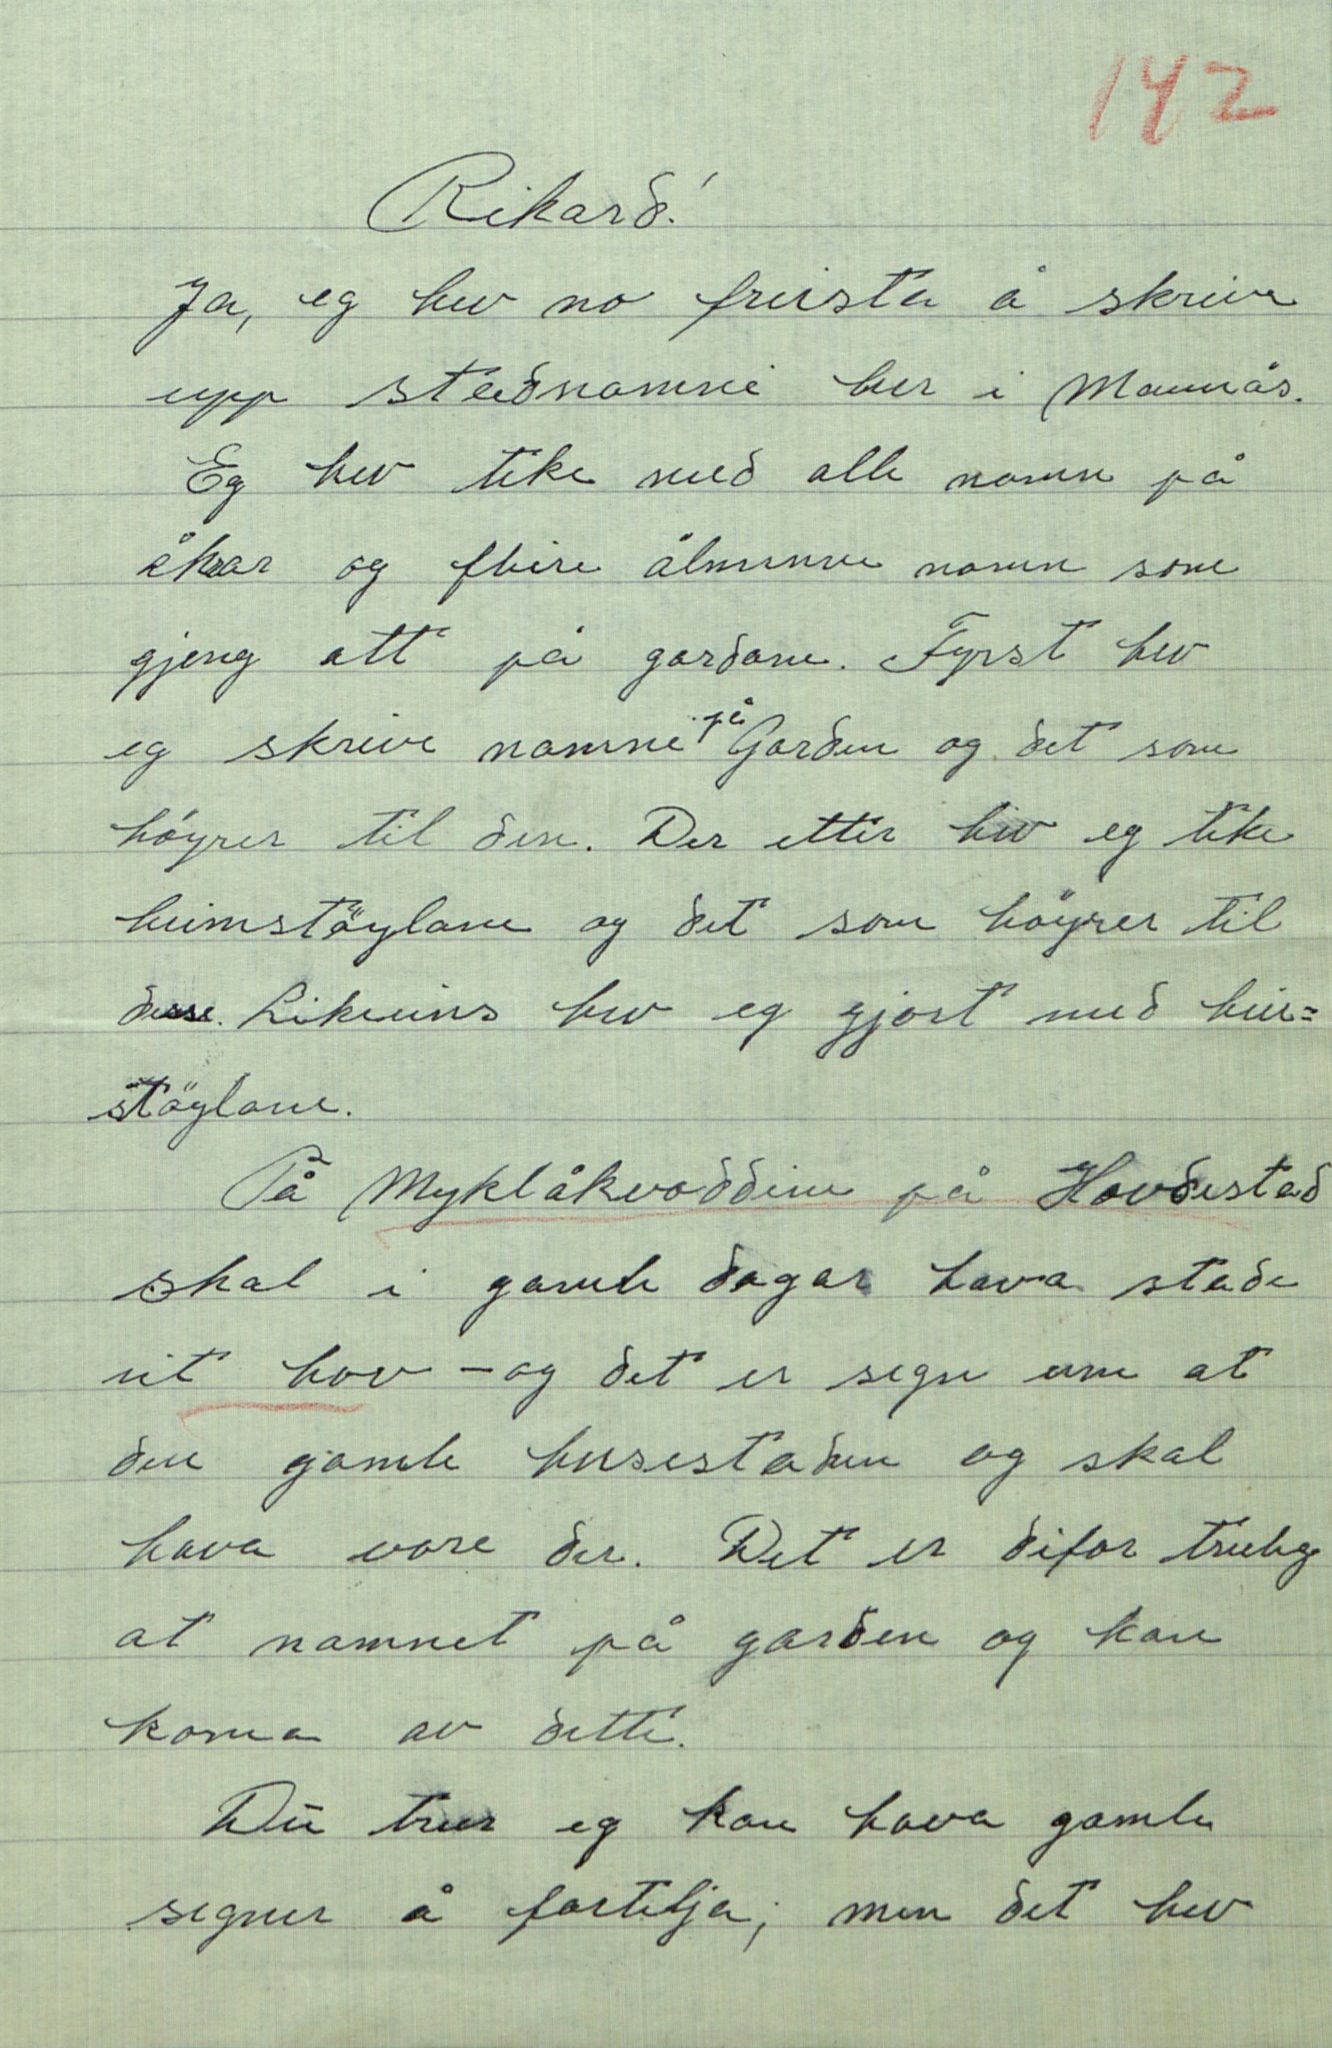 142
Rikard!
Ja, eg hev no freista å skriva
upp stednamni her i Mannås.
Eg hev teke med alle namn på
åkrar og fleire ålmenne namn som
gjeng att på gardane. Fyrst hev
eg skrive namni på Garden og det som
höyrer til den. Der etter hev eg teke
heimstöylane og det som höyrer til
desse. Likeeins hev eg gjort med hei=
stöylane.
På Myklåkvoddine på Hovdestad
skal i gamle dagar hava stade
eit hov – og det er segn um at
den gamle husestaden og skal
hava vore der. Det er difor truleg
at namnet på garden og kan
koma av dette.
Du trur eg kan hava gamle
segner å fortelja; men det hev